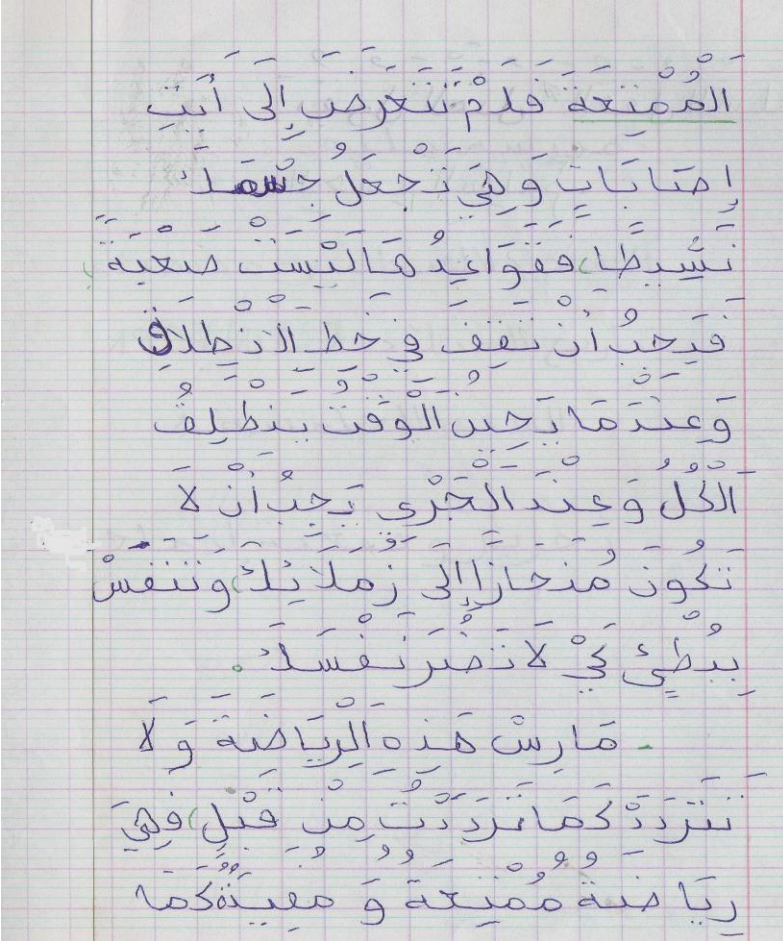 الْمُمْتِعَةَ فَلَمْ تَتَعَرَّضَ إِلَى أَيِّتِ
إِصَابَاتٍ وَهِيَ تَجْعَلُ جِسْمَكَ
نَشِيطًا، فَقَوَاعِدُهَا لَيْسَتْ صَعْبَةً،
فَيَجِبُ أَنْ تَقِفَ فِي خَطِّ الْاِنْطِلَاقِ
وَعِنْدَمَا يَحِينُ الْوَقْتُ يَنْطَلِقُ
الْكُلُّ وَعِنْدَ الْجَرْيِ يَجِبُ أَنْ لَا
تَكُونَ مُنْحَازًا إِلَى زُمَلَائِكَ، وَتَتَنَفَّسْ
بِبُطْئٍ كَيْ لَا تَضُرَّ نَفْسَكَ.
- مَارِسْ هَذِهِ الْرِيَاضَةَ وَ لَا
تَتَرَدَدْ كَمَا تَرَدَدْتُ مِنْ قَبْلِ، فَهِيَ
رِيَاضَةٌ مُمْتِعَةٌ وَ مُفِيدَةٌ كَمَا